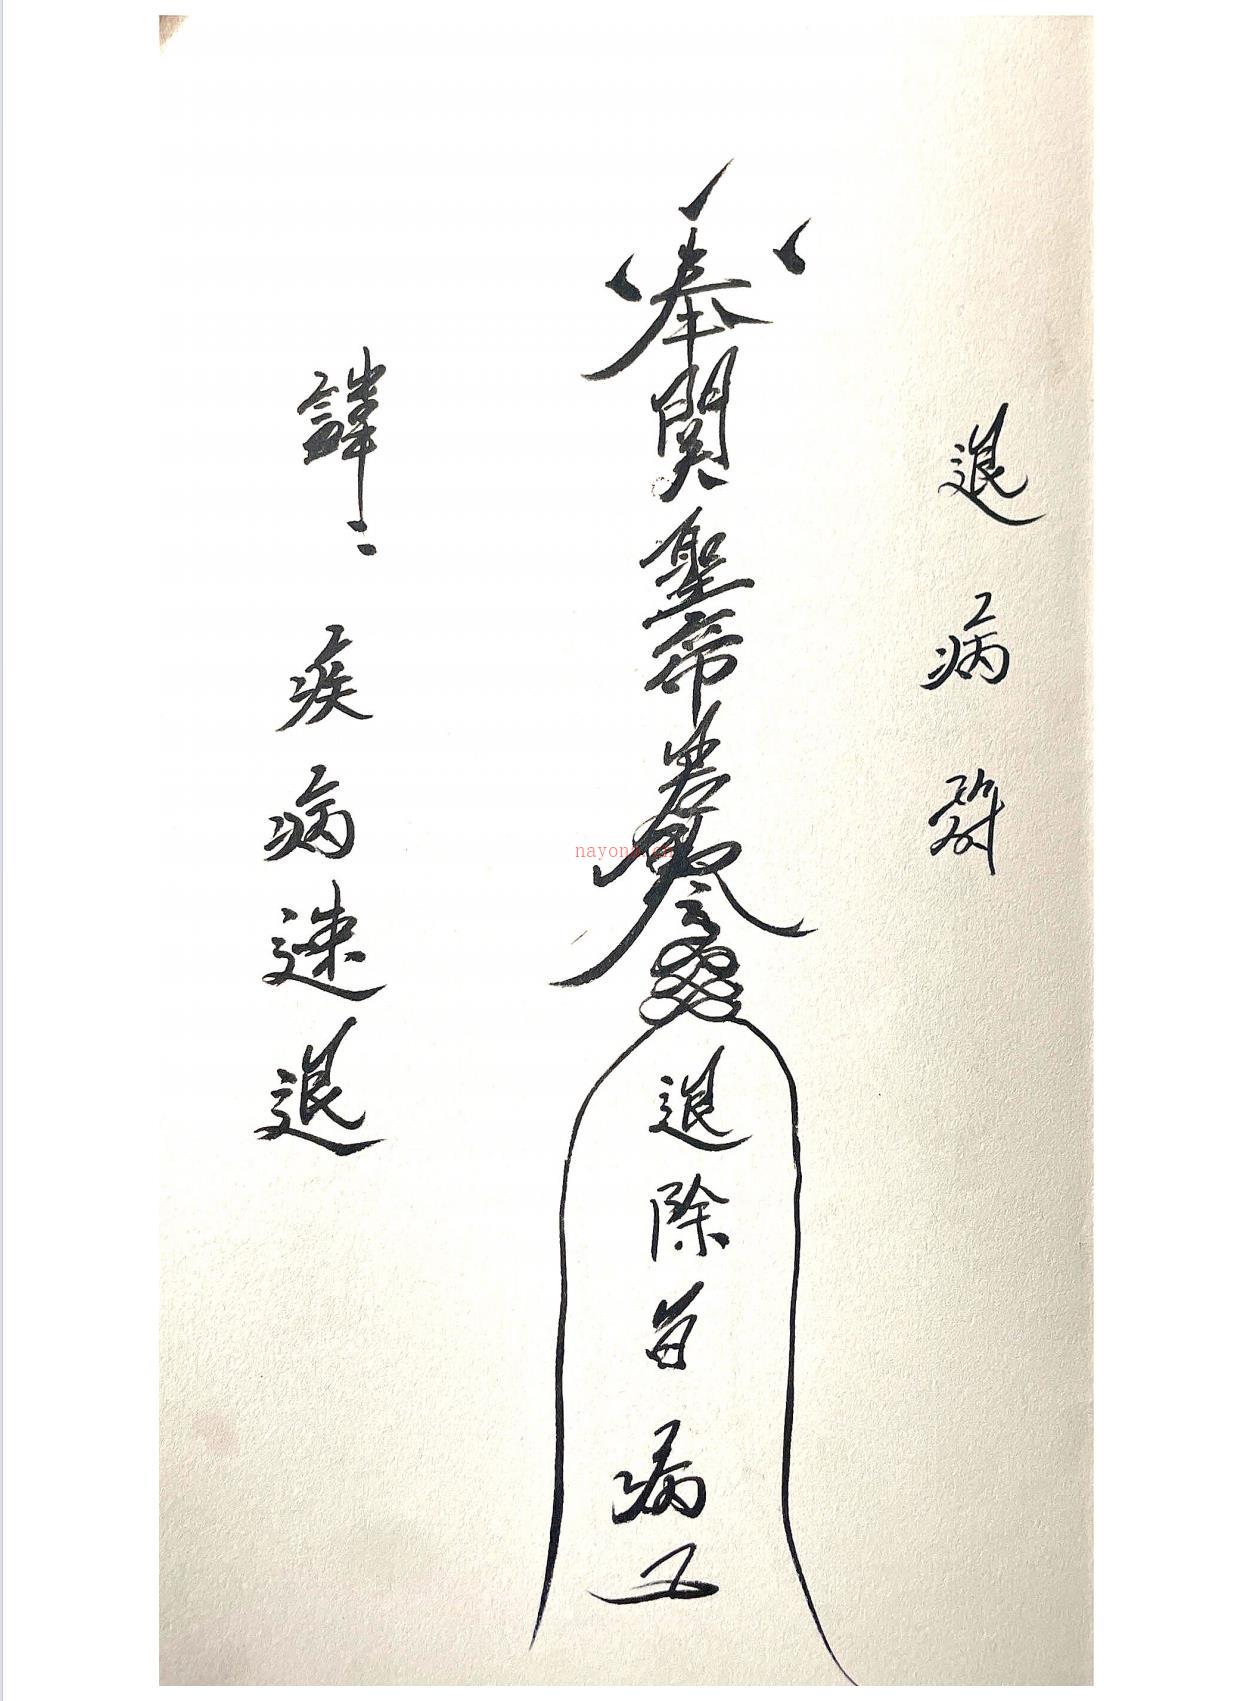 退病符
奉關聖帝君敕令
退除百病
諱 疾病速退
nayon